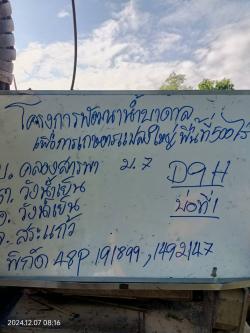 โครงการพัฒนาน้ำบาดาล
เพื่อการเกษตรแปลงใหญ่ พื้นที่ 500 ไร่
บ. คลองสารพา ม. 7
ต. วังน้ำเย็น D9H
อ. วังน้ำเย็น บ่อที่ 1
จ. สระแก้ว
พิกัด 48P 191899, 1492147
2024.12.07 08:16